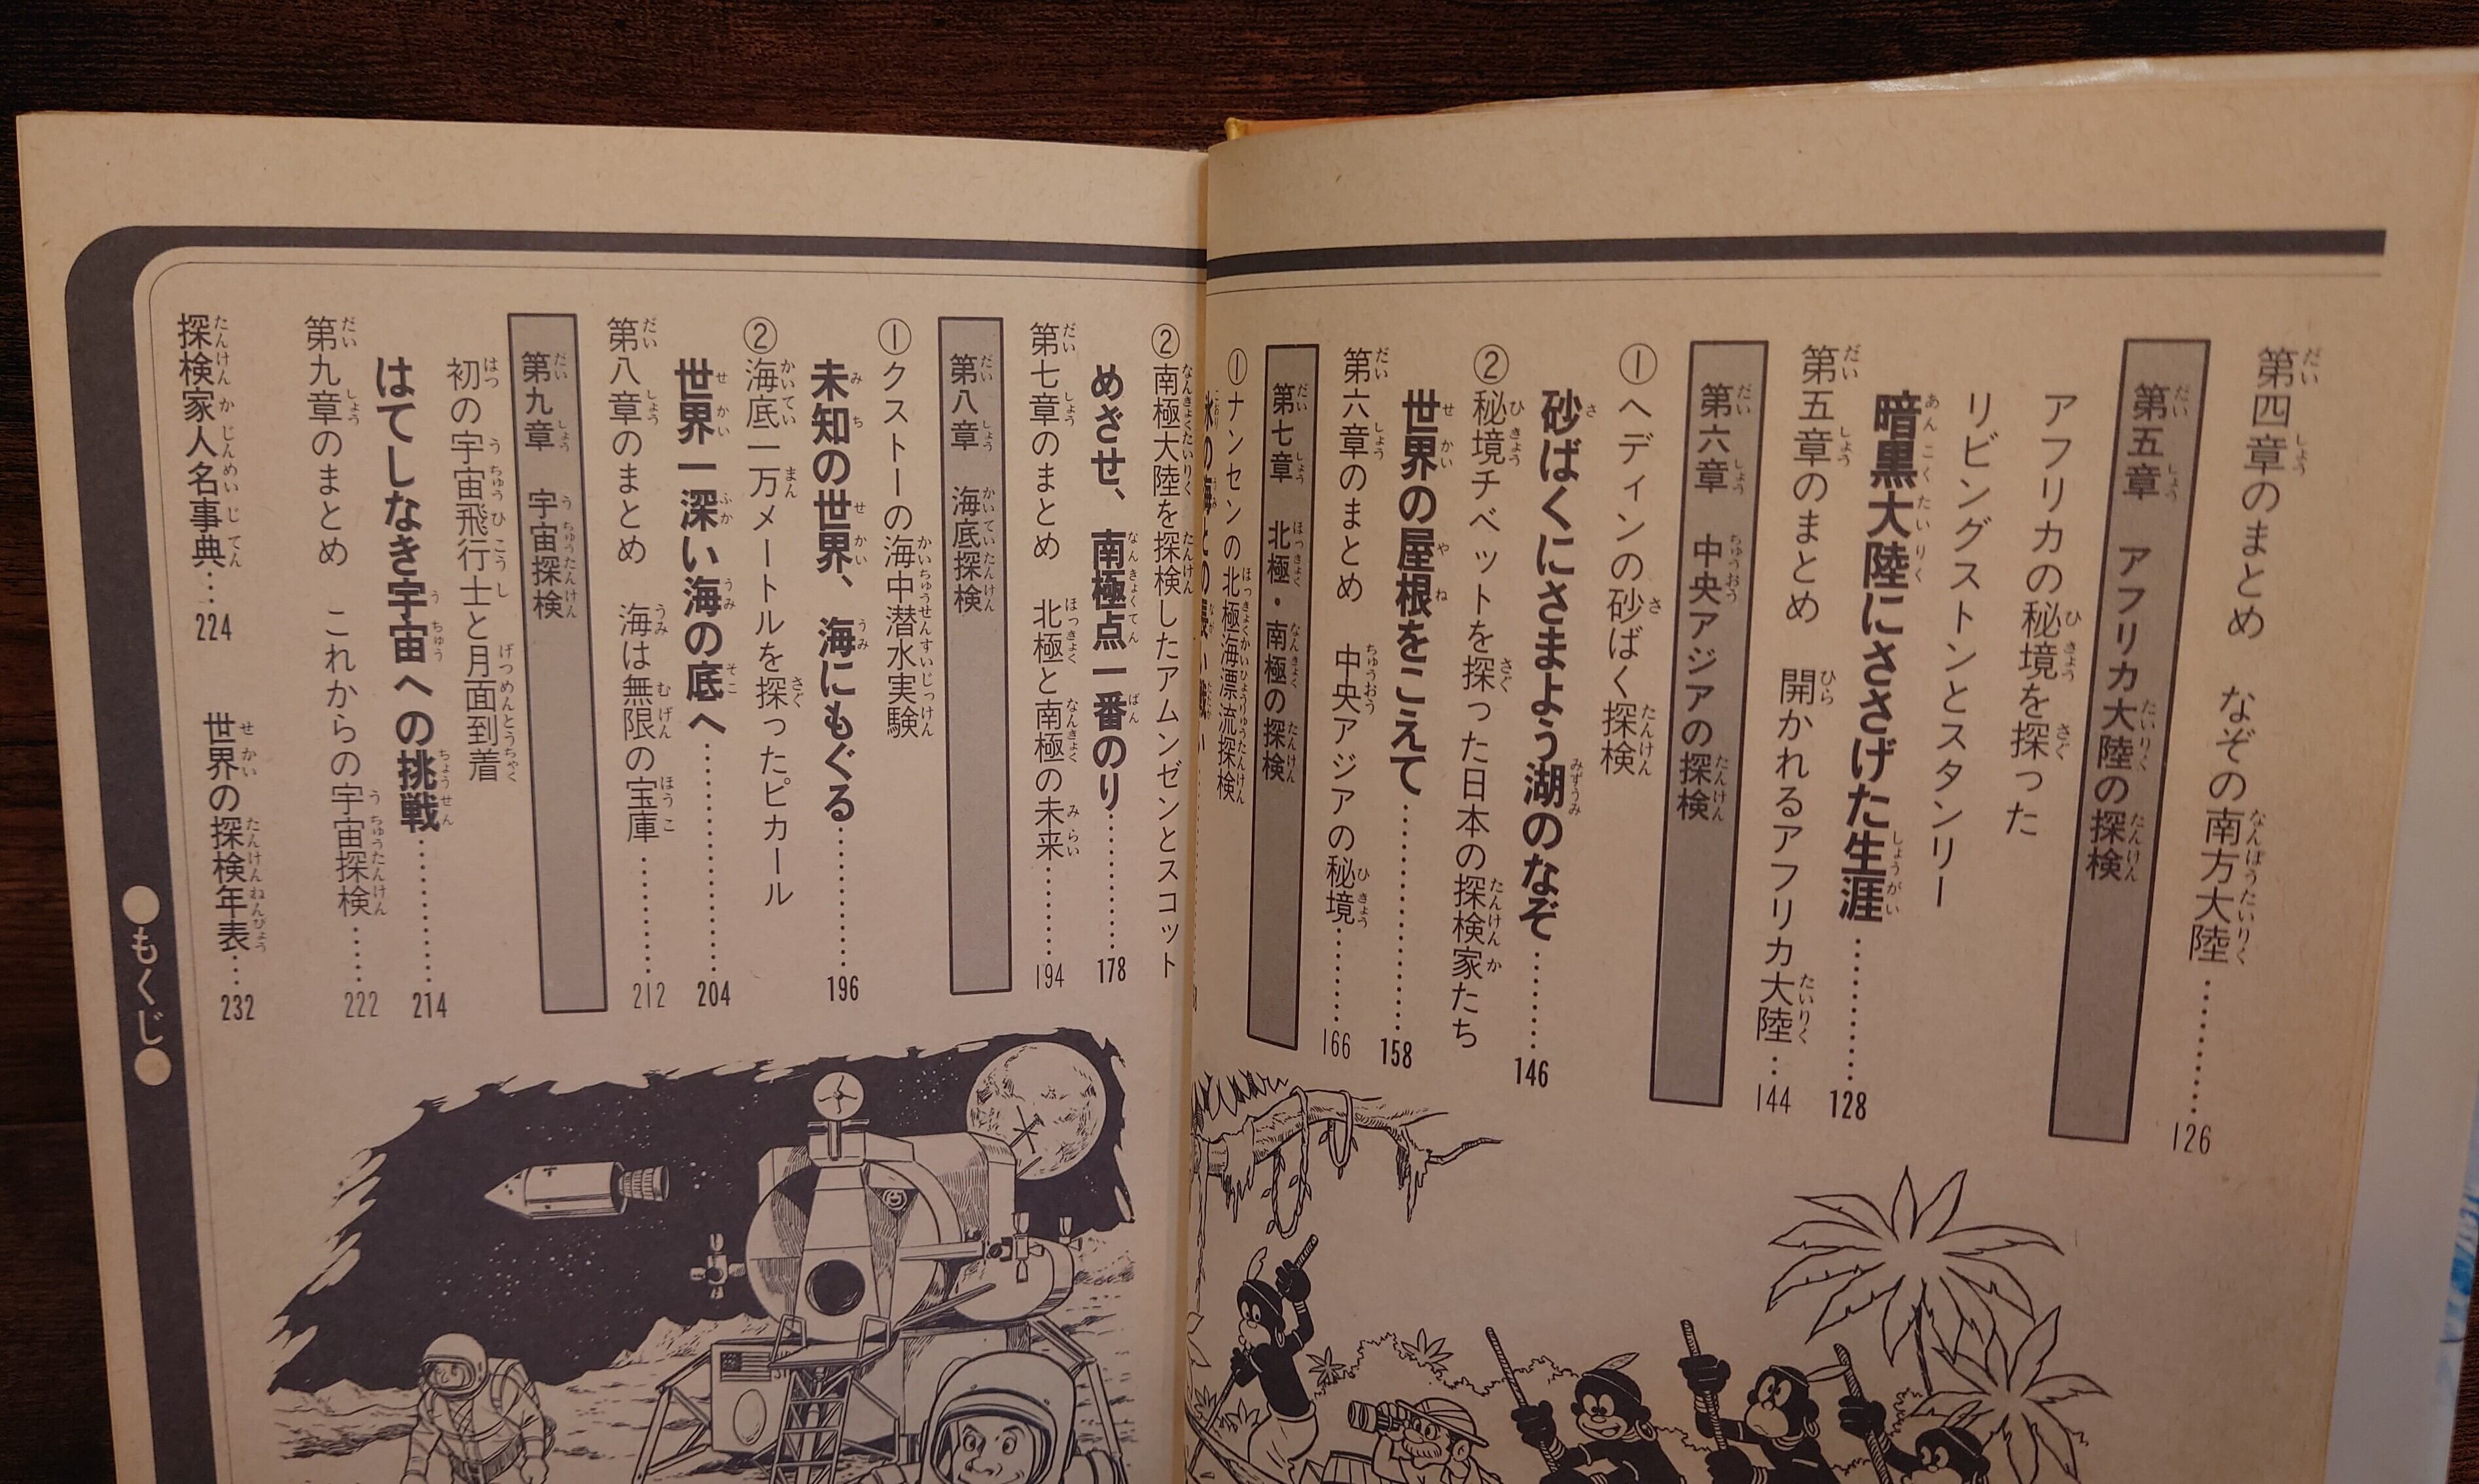 第四章のまとめ　なぞの南方大陸…………126
第五章　アフリカ大陸の探検
アフリカの秘境を探った
リビングストンとスタンリー
暗黒大陸にささげた生涯…………128
第五章のまとめ　開かれるアフリカ大陸…144
第六章　中央アジアの探検
①ヘディンの砂ばく探検
砂ばくにさまよう湖のなぞ…………146
②秘境チベットを探った日本の探検家たち
世界の屋根をこえて…………158
第六章のまとめ　中央アジアの秘境…………166
第七章　北極・南極の探検
①ナンセンの北極海漂流探検
氷の海との
②南極大陸を探検したアムンゼンとスコット
めざせ、南極点一番のり…………178
第七章のまとめ　北極と南極の未来…………194
第八章　海底探検
①クストーの海中潜水実験
未知の世界、海にもぐる…………196
②海底一万メートルを探ったピカール
世界一深い海の底へ…………204
第八章のまとめ　海は無限の宝庫…………212
第九章　宇宙探検
初の宇宙飛行士と月面到着
はてしなき宇宙への挑戦…………214
第九章のまとめ　これからの宇宙探検……222
探検家人名事典…224　世界の探検年表…232
●もくじ●